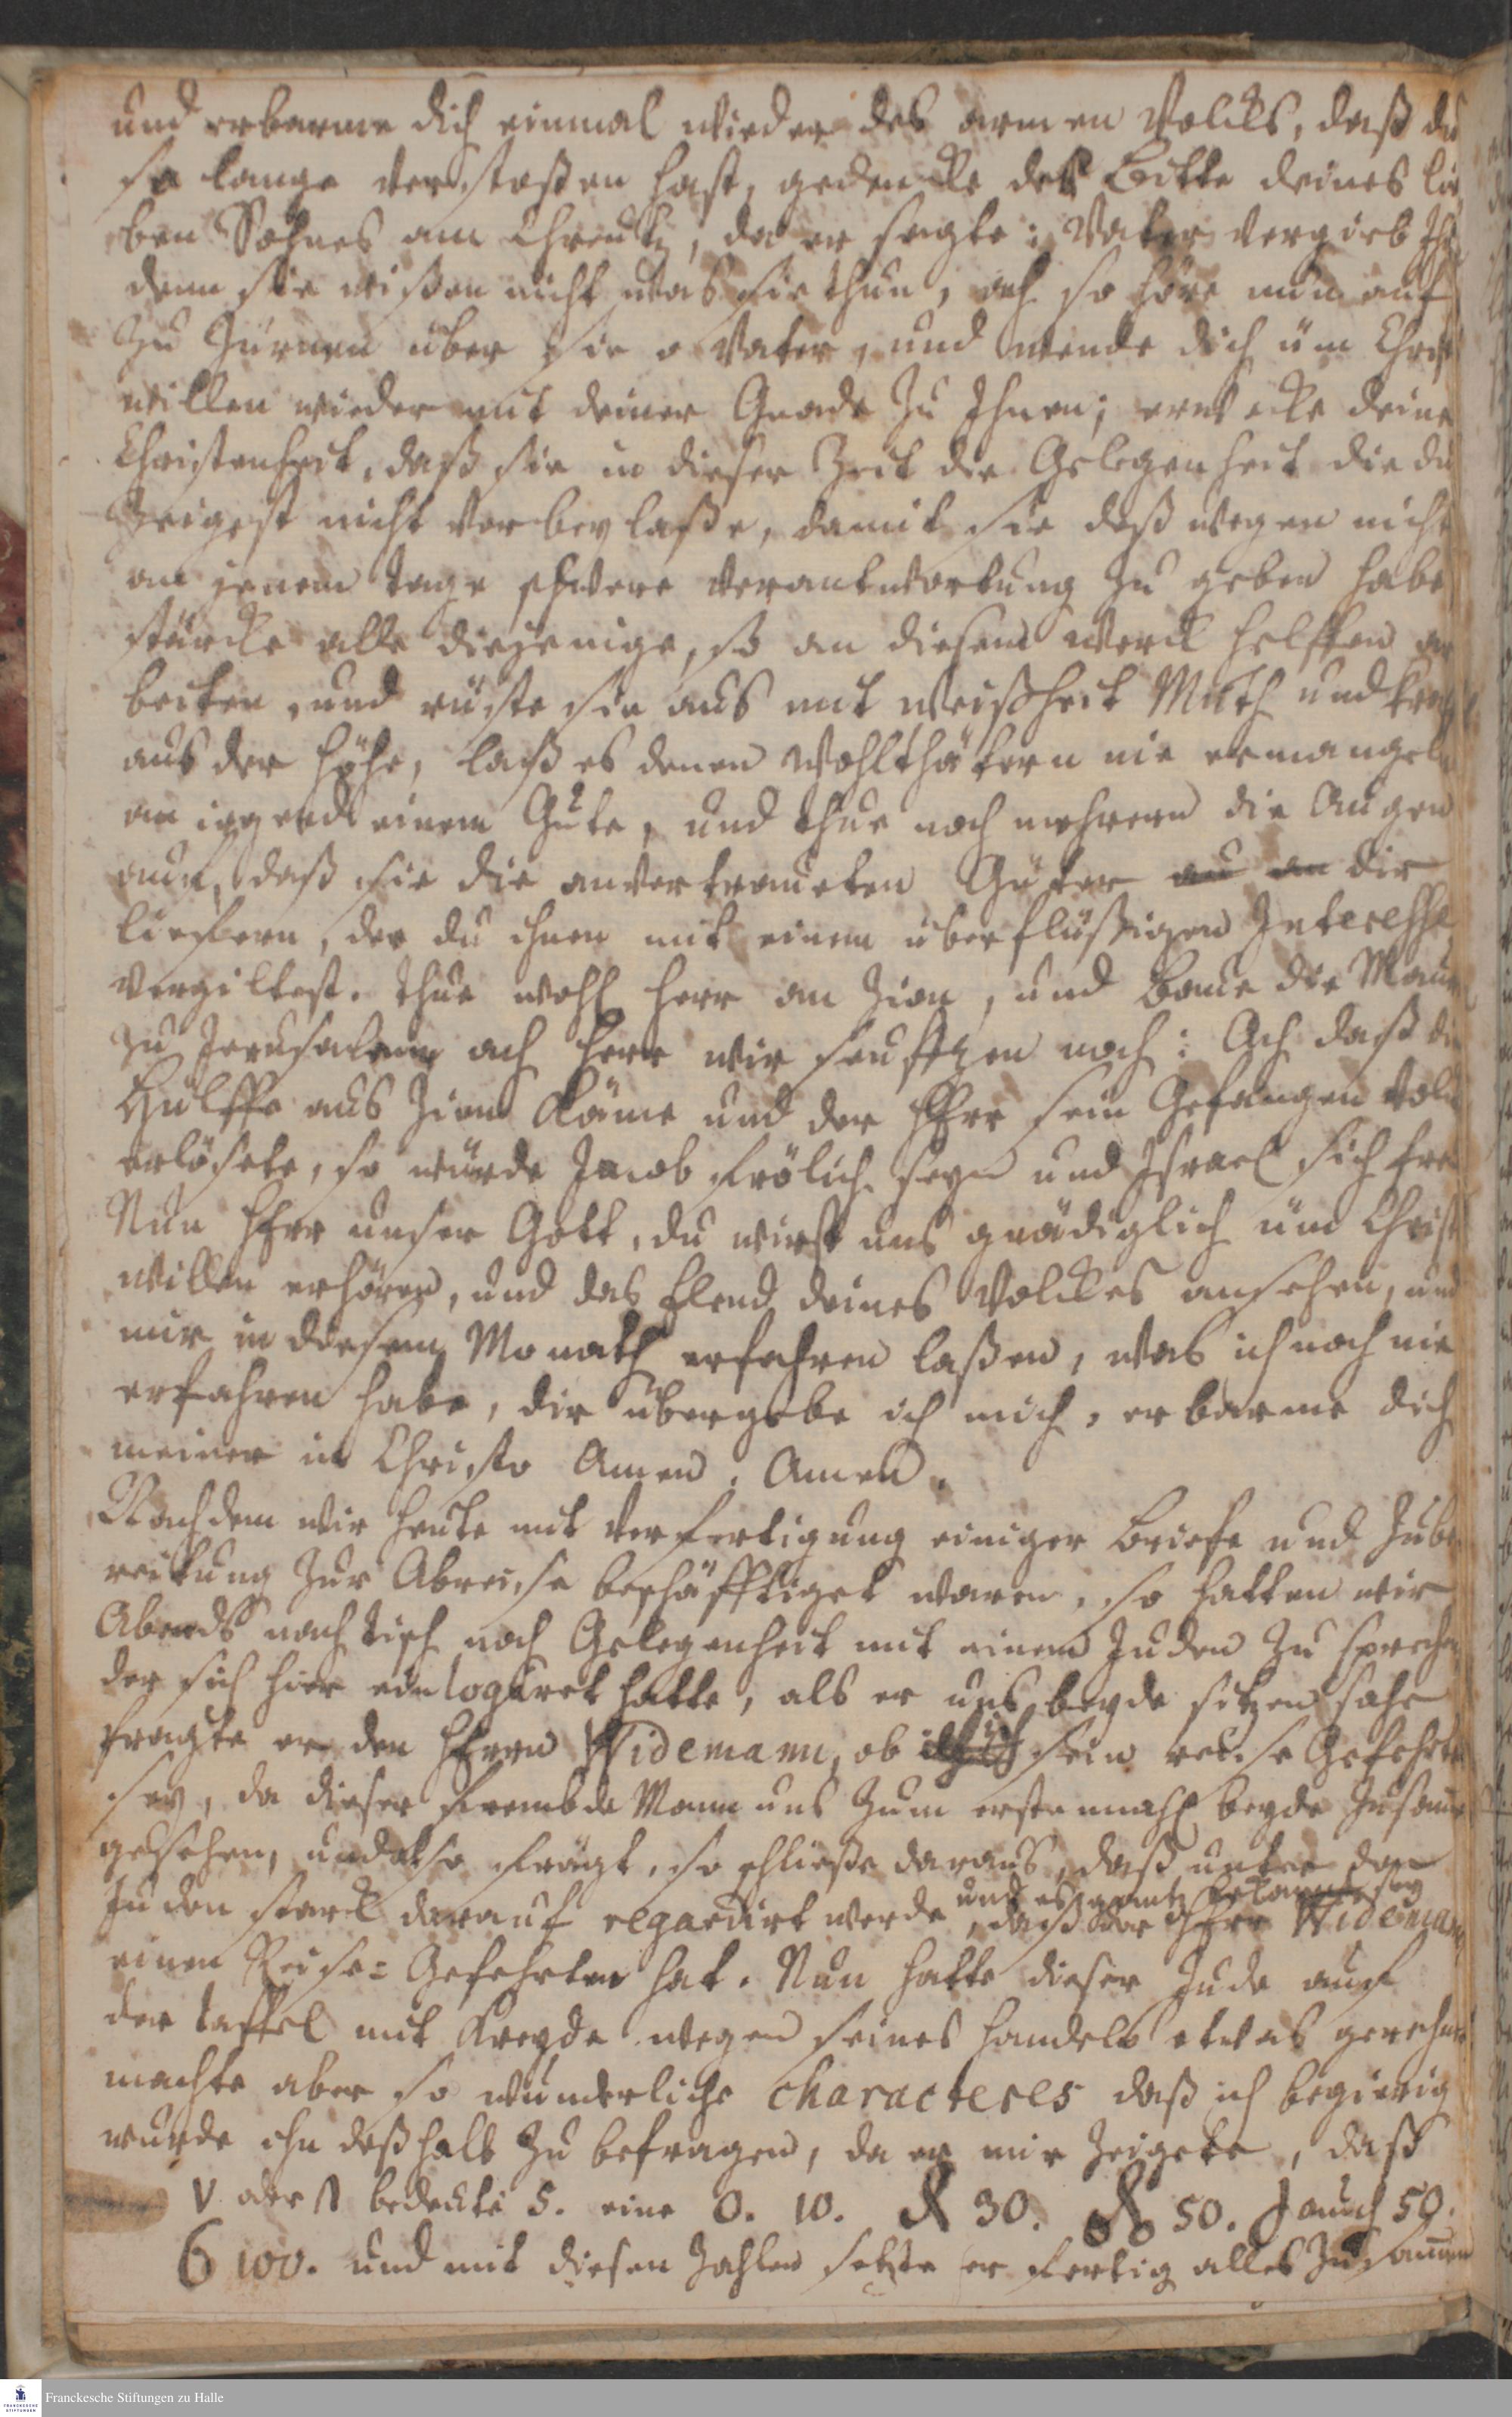 und erbarme dich einmal wieder des armen Volcks, daß du
so lange verstoßen hast, gedencke der Bitte deines lie
ben Sohnes am Chreutz, da er sagte: Vater vergieb Ihn
denn sie wißen nicht was sie thun, ach so höre nun auf
zu Zürnen über sie o Vater, und wende dich üm Christi
willen wieder mit deiner Gnade zu Ihnen; erwecke deine
Christenheit, daß sie in dieser Zeit die Gelegenheit die du
zeigest nicht vorbey laße, damit sie deßwegen nicht
an jenem tage schwere verantwortung zu geben habe
stärcke alle diejenige, so an diesem werck helffen ar
beiten, und rüste sie aus mit Weißheit Muth und Krafft
aus der höhe, laß es denen Wohlthätern nie ermangeln
an irgend einem Gute, und thue noch mehrern die Augen
auf, daß sie die anvertraueten Güter dir
lieffern, der du ihnen mit einem überflüßigen Interesse
vergiltest. thue wohl Herr an Zion, und baue die Maur
zu Jerusalem ach Herr wir seuffzen noch: Ach daß die
Hülffe aus Zion käme und der HErr sein Gefangen Volck
erlösete, so würde Jacob frölich seyn und Israel sich freu
Nun HErr unser Gott, du wirst uns gnädiglich üm Christi
willen erhören, und das Elend deines Volckes ansehen, und
mir in diesem Monath erfahren laßen, was ich noch nie
erfahren habe, dir übergebe ich mich, erbarme dich
meiner in Christo Amen. Amen.
Nachdem wir heute mit Verfertigung einiger Briefe und Zube
reitung zur Abreise beschäfftiget waren, so hatten wir
Abends nach tisch noch Gelegenheit mit einem Juden zu sprechen
der sich hier einlogiret hatte, als er uns beyde sitzen sahe
fragte er den HErrn Widemann, ob ich sein reise Gefehrte
sey, da dieser frembde Mann uns zum erstenmahl beyde zusamen
gesehen, und also frägt, so schließe daraus, daß unter den
Juden starck darauf regardirt werde und es bekannt sey
, daß der HErr Widemann
einen Reise-Gefehrten hat. Nun hatte dieser Jude auf
der taffel mit Kreyde wegen seines handels etwas gerechnet
machte aber so wunderliche characteres daß ich begierig
wurde ihn deßhalb zu befragen, da er mir zeigete, daß
V oder Λ bedeute 5. eine 0. 10. 30. 50. auch 50.
6 100. und mit diesen Zahlen setzte er fertig alles zusammen
Franckesche Stiftungen zu Halle